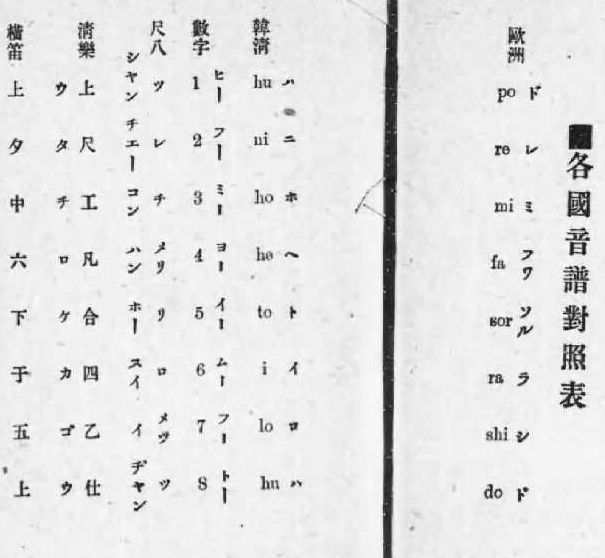 ■各國音譜對照表
ド レ ミ フワ ソル ラ シ ド
歐洲 po re mi fa sor ra shi do
ハ ニ ホ ヘ ト イ ロ ハ
韓清 hu ni ho he to i lo hu
ヒー フー ミー ヨー イー ムー フー トー
數字 1 2 3 4 5 6 7 8
尺八 ツ レ チ メリ リ ロ メツ ツ
シヤン チエー コン ハン ホー スイ イ ヂヤン
清樂 上 尺 工 凡 合 四 乙 仕
ウ タ チ ロ ケ カ ゴ ウ
橫笛 上 夕 中 六 下 于 五 上